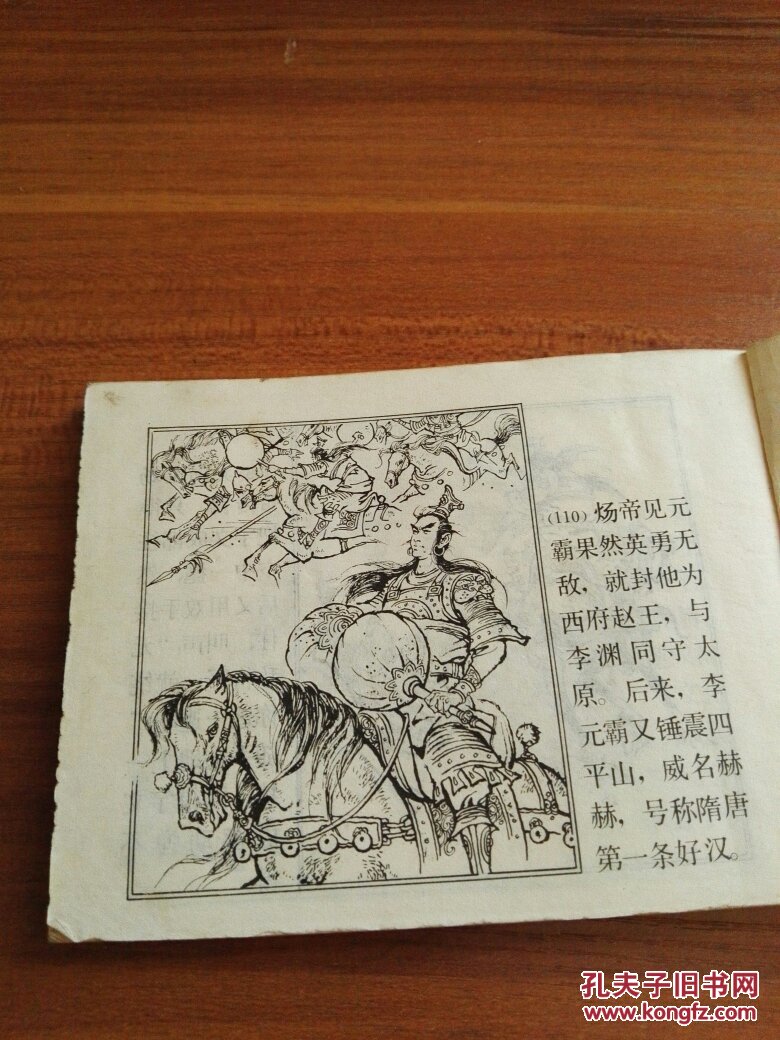 (110) 炀帝见元
霸果然英勇无
敌，就封他为
西府赵王，与
李渊同守太
原。后来，李
元霸又锤震四
平山，威名赫
赫，号称隋唐
第一条好汉。
孔夫子旧书网
www.kongfz.com